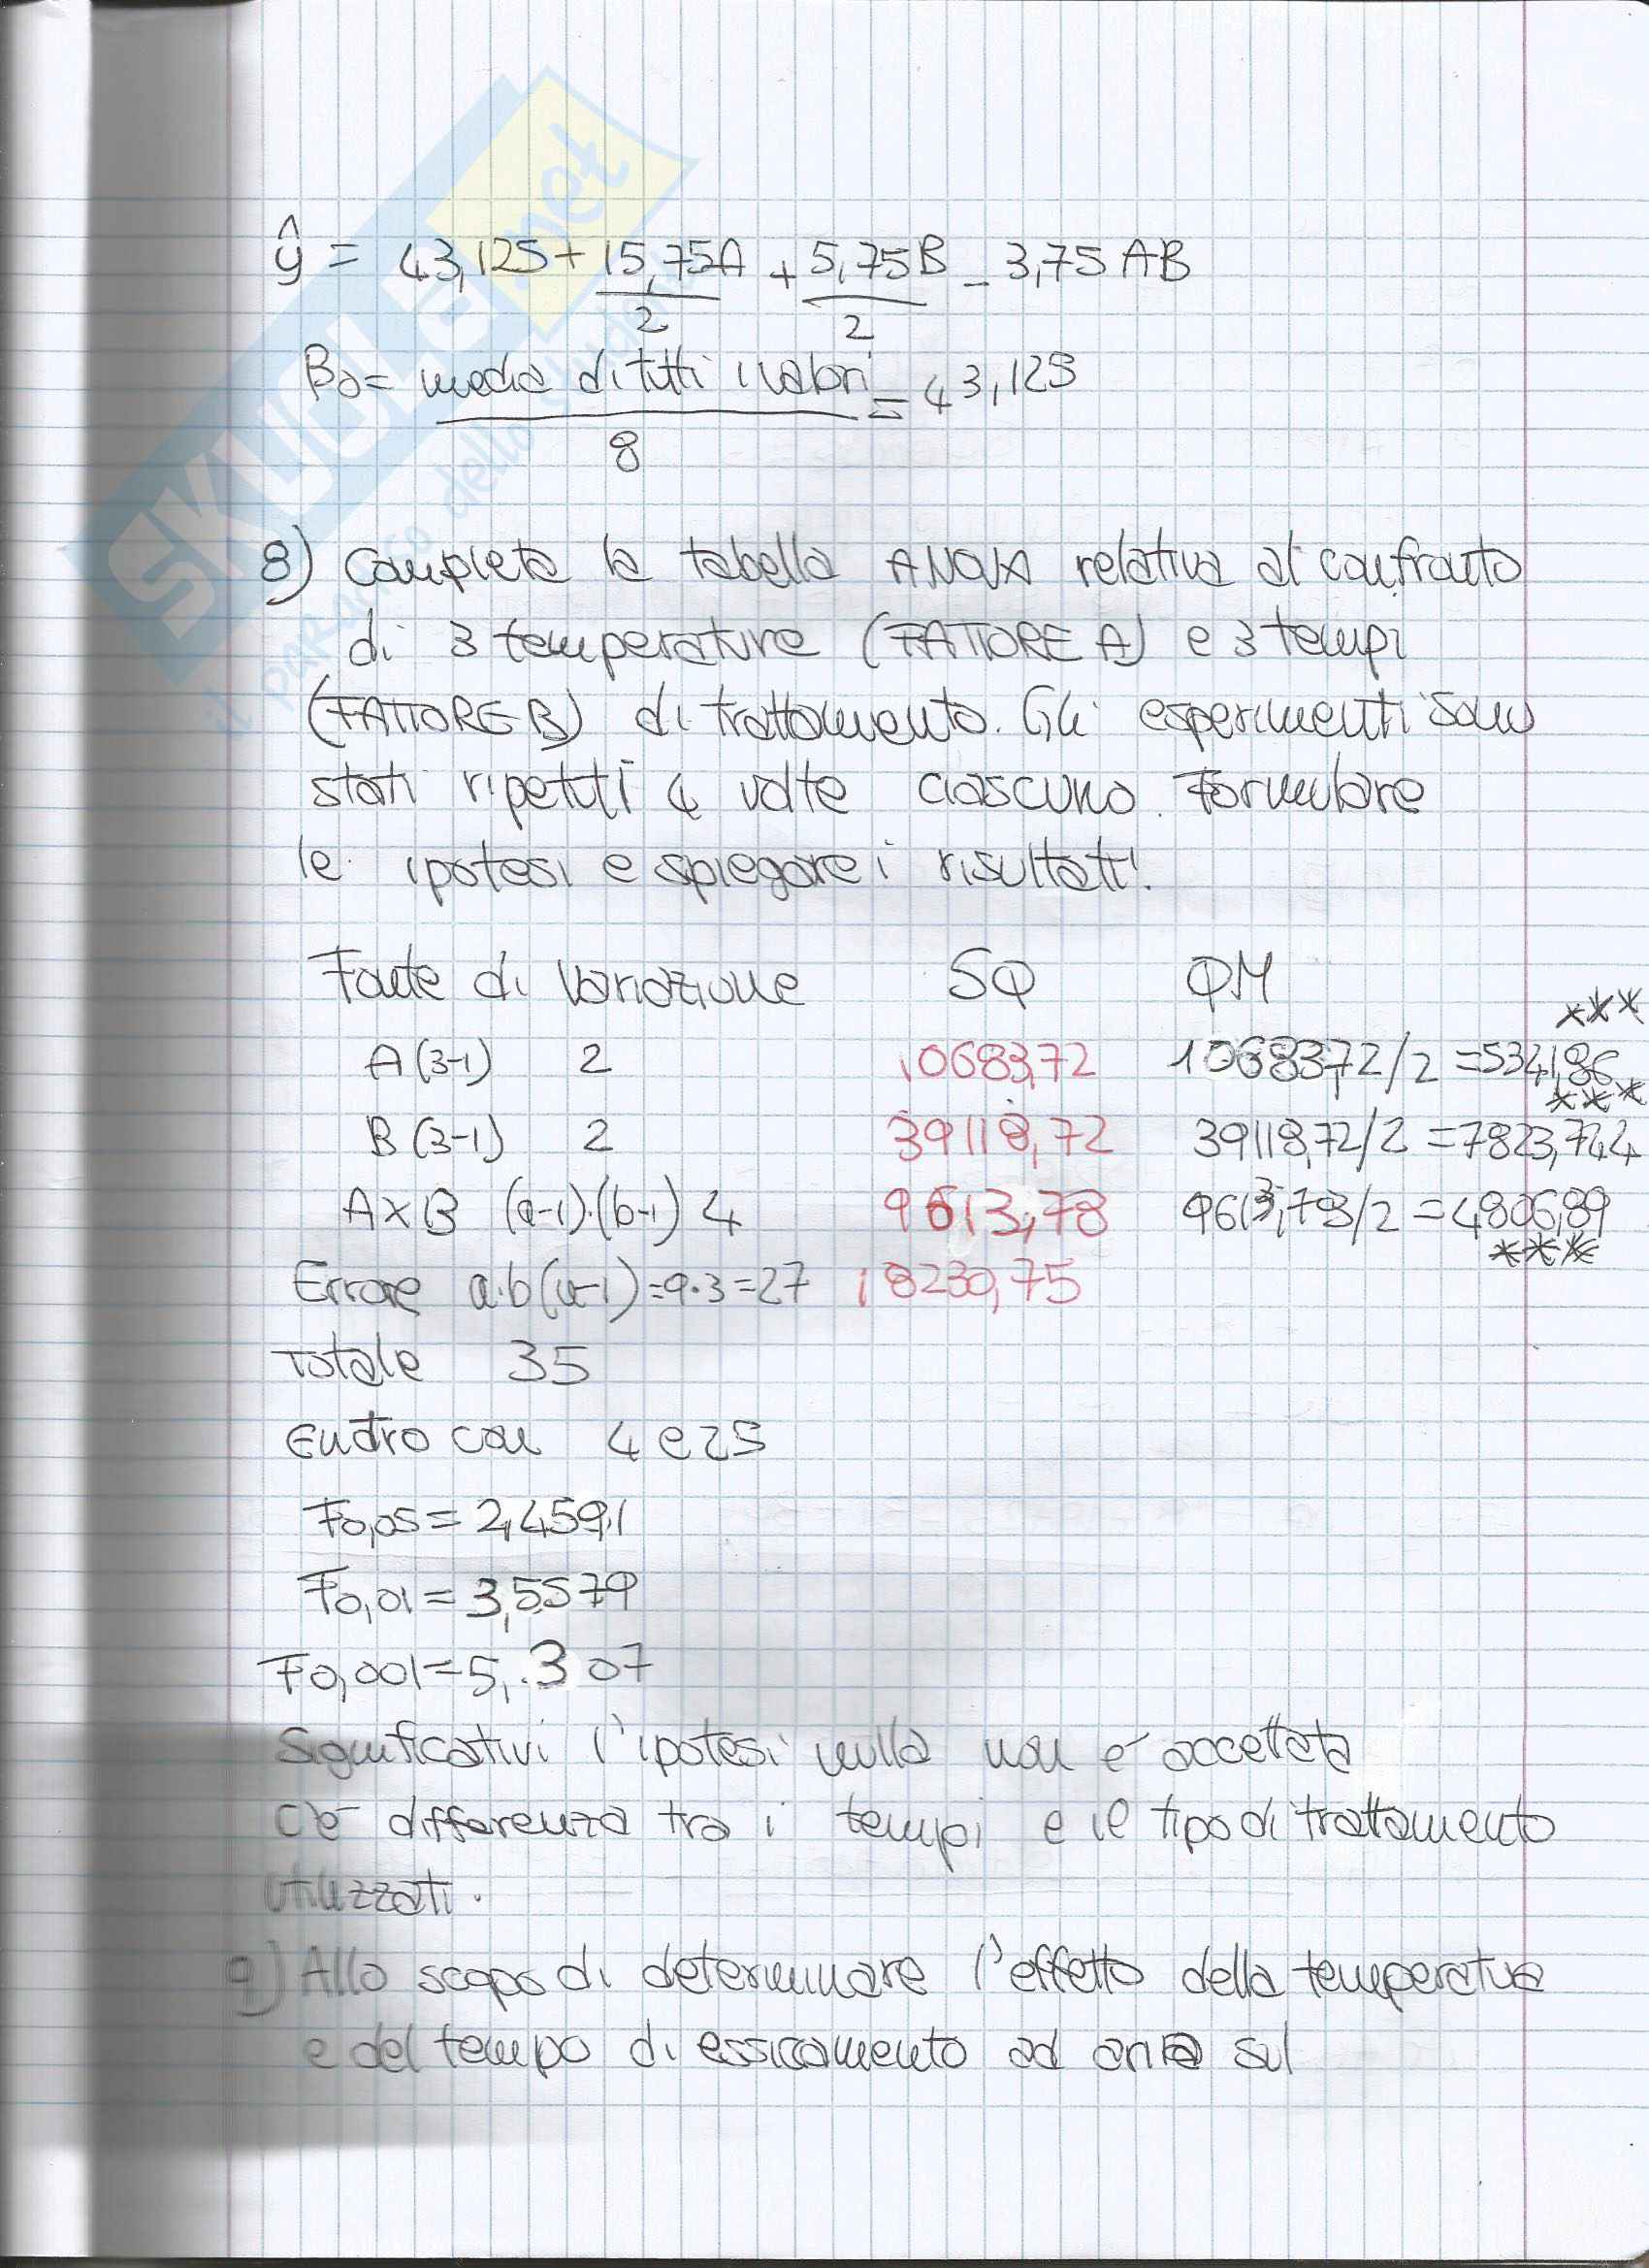 ŷ = 43,125 + 15,75A/2 + 5,75B/2 - 3,75 AB
B0 = media di tutti i valori/8 = 43,125
8) Completa la tabella ANOVA relativa al confronto
di 3 temperature (FATTORE A) e 3 tempi
(FATTORE B) di trattamento. Gli esperimenti sono
stati ripetuti 4 volte ciascuno. Formulare
le ipotesi e spiegare i risultati.
Fonte di variazione SQ QM
***
A (3-1) 2 10683,72 10683,72/2 = 5341,86
***
B (3-1) 2 39118,72 39118,72/2 = 7823,744
A×B (a-1)·(b-1) 4 9613,78 9613,78/2 = 4806,89
***
Errore a·b(n-1) = 9·3 = 27 18230,75
Totale 35
Entro con 4 e 25
F0,05 = 2,4591
F0,01 = 3,5579
F0,001 = 5,.307
Significativi l'ipotesi nulla non è accettata
c'è differenza tra i tempi e il tipo di trattamento
utilizzati.
9) Allo scopo di determinare l'effetto della temperatura
e del tempo di essiccamento ad aria sul
SKUOLA.net
il paradiso dello studente